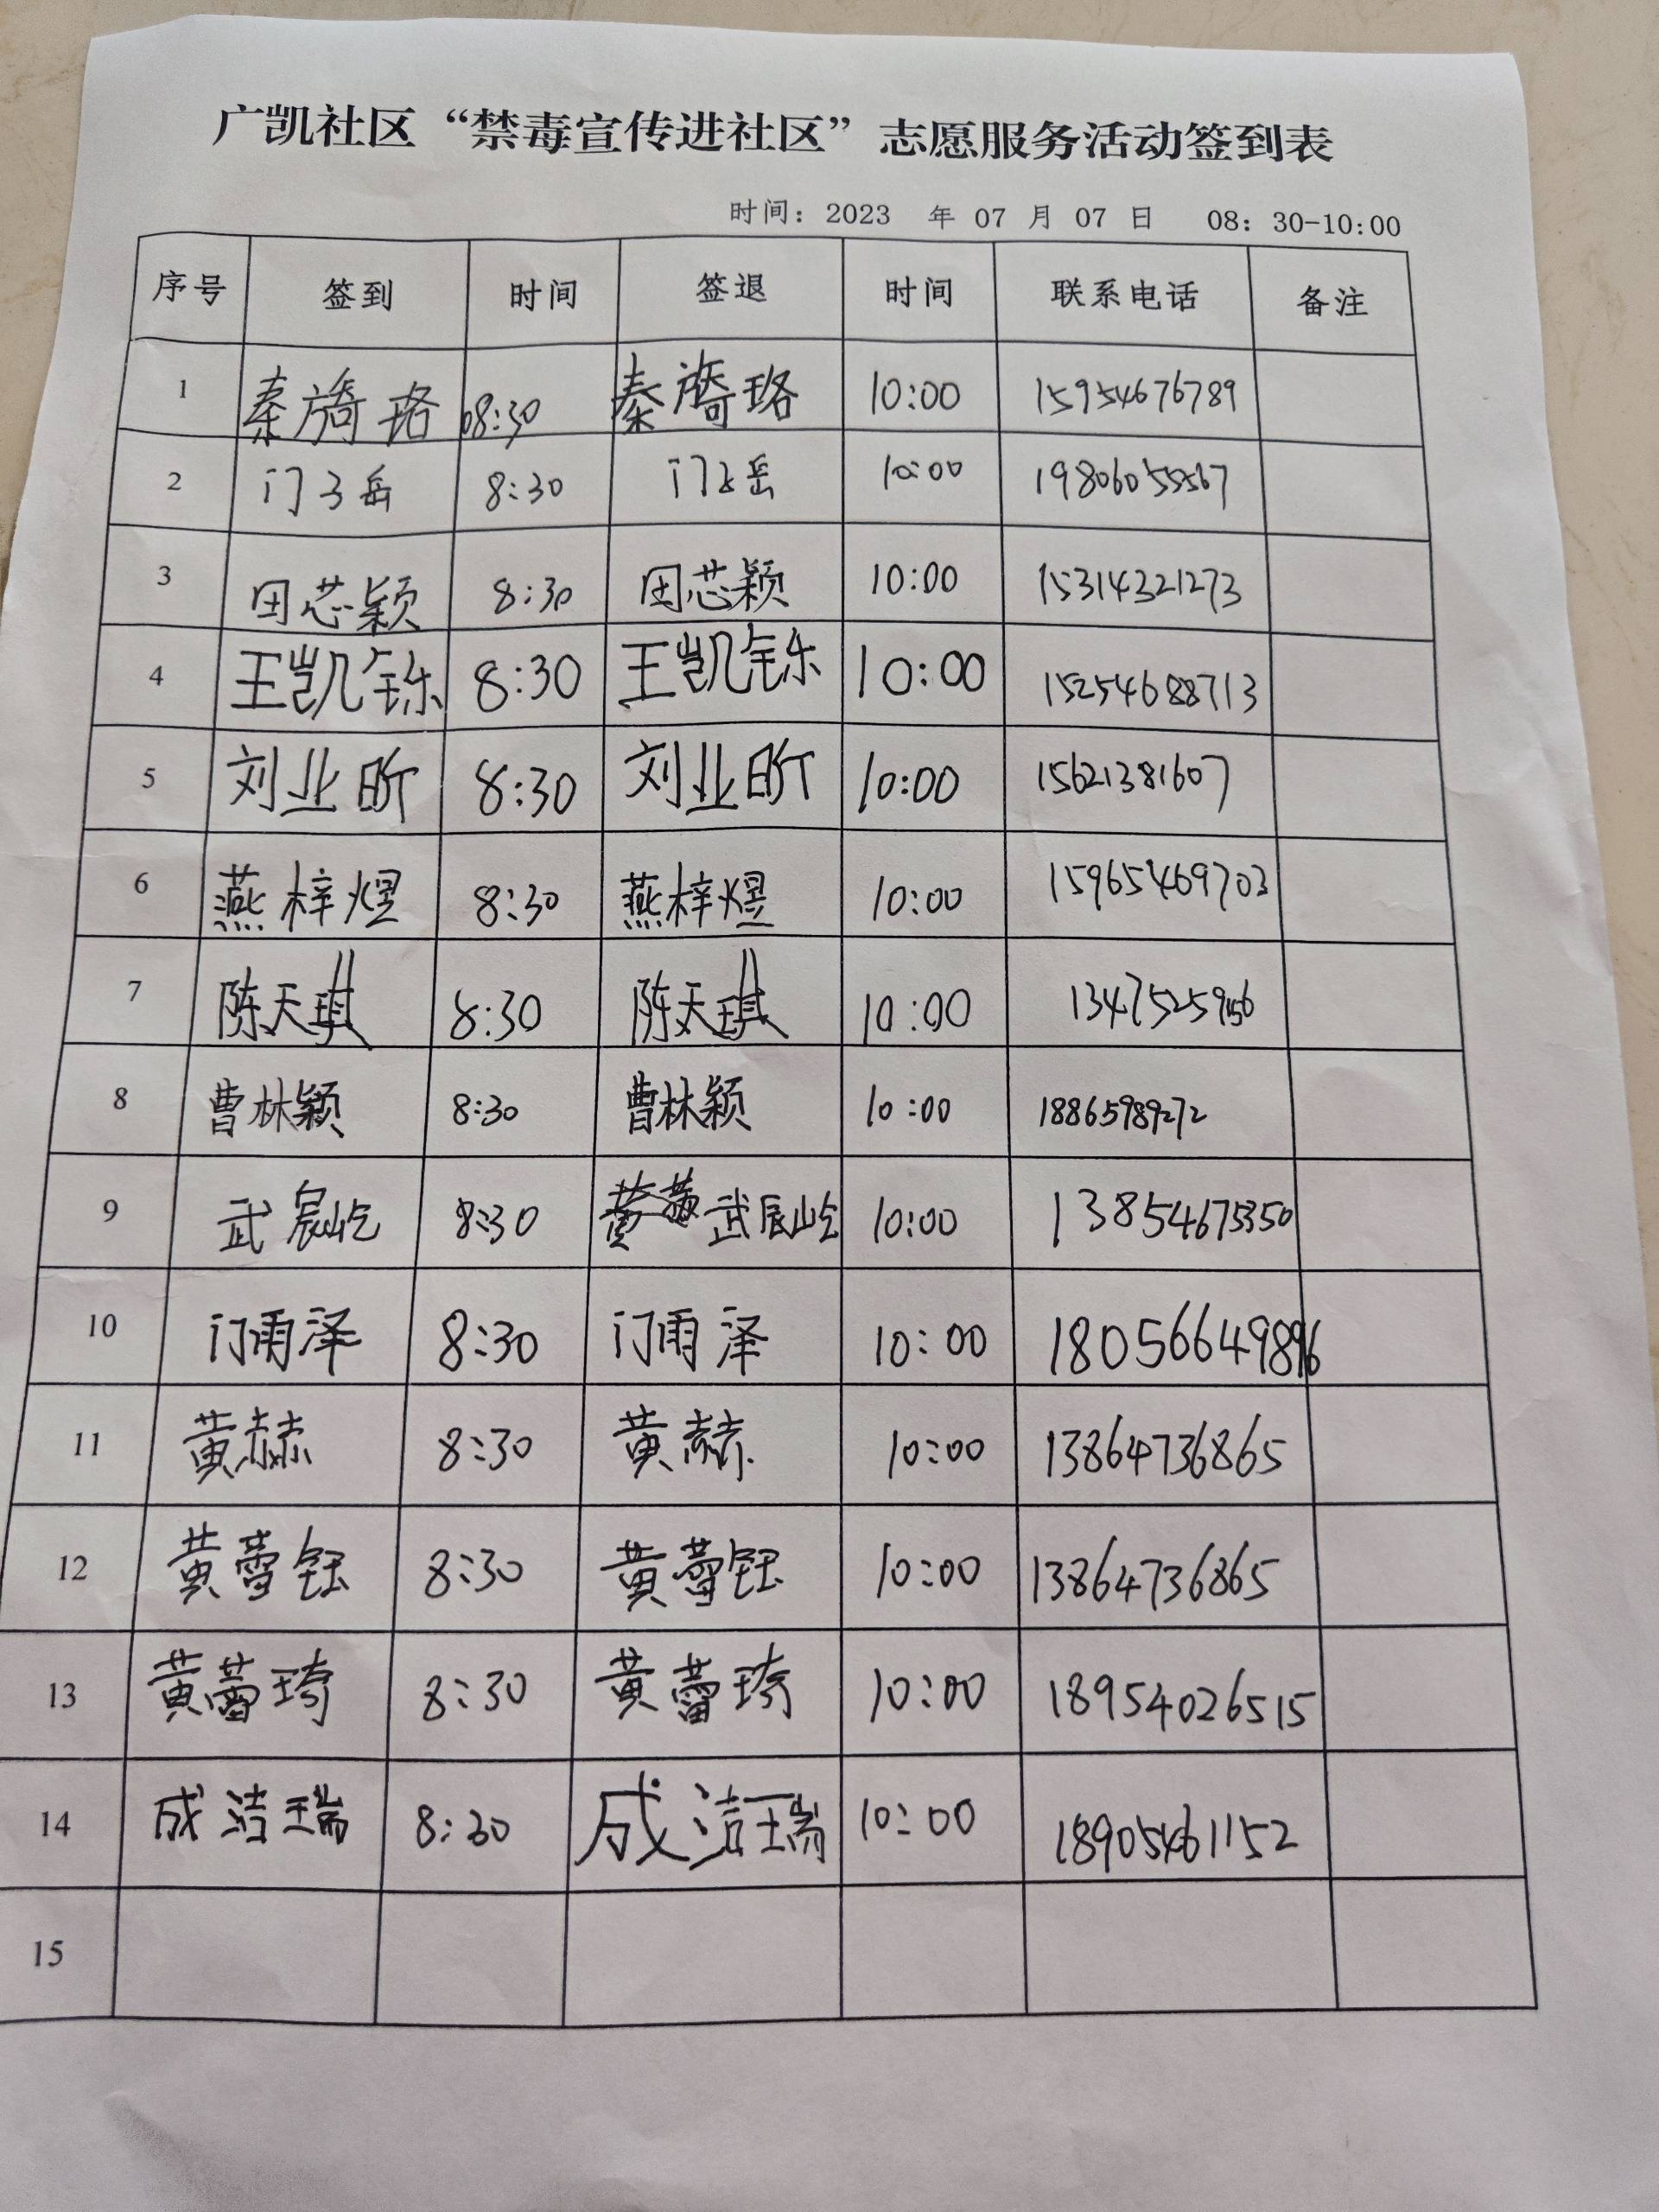 广凯社区“禁毒宣传进社区”志愿服务活动签到表
时间：2023 年 07 月 07 日 08：30-10:00
序号 签到 时间 签退 时间 联系电话 备注
1 秦旖珞 08:30 秦旖珞 10:00 15954676789
2 门子岳 8:30 门子岳 10:00 19806055567
3 田芯颖 8:30 田芯颖 10:00 15314321273
4 王凯铄 8:30 王凯铄 10:00 15254688713
5 刘业昕 8:30 刘业昕 10:00 15621381607
6 燕梓煜 8:30 燕梓煜 10:00 15965469703
7 陈天琪 8:30 陈天琪 10:00
8 曹林颖 8:30 曹林颖 10:00 18865989272
9 武宸屹 8:30 武辰屹 10:00
10 门雨泽 8:30 门雨泽 10:00 18056649896
11 黄赫 8:30 黄赫 10:00 13864736865
12 黄蕾钰 8:30 黄蕾钰 10:00 13864736865
13 黄蕾琦 8:30 黄蕾琦 10:00 18954026515
14 成洁瑞 8:30 成洁瑞 10:00 18905461152
15